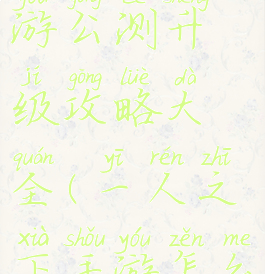 游公测升
jí gōng lüè dà
级攻略大
quán yī rén zhī
全(一人之
xià shǒu yóu zěn me
下手游怎么